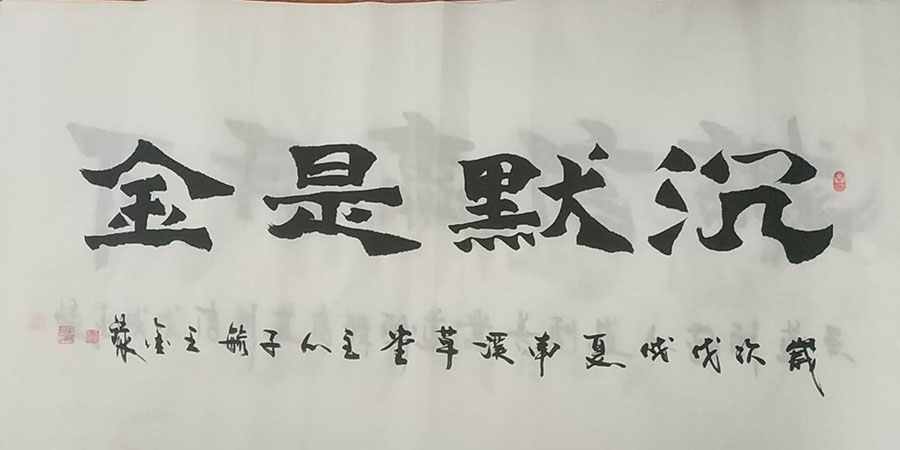 沉默是金
歲次戊戌夏南溪草堂主人子毓王金